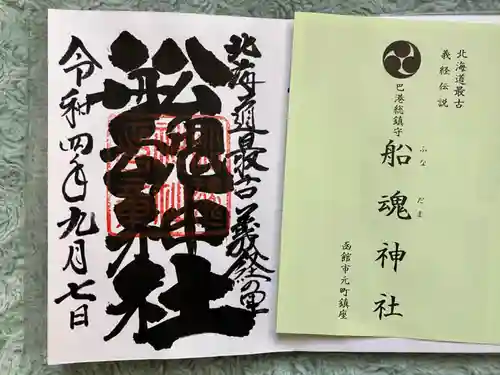 北海道最古
義経伝説
巴港総鎮守
船魂神社
ふな
だま
函館市元町鎮座
北海道最古義経の里
船魂神社
令和四年九月七日